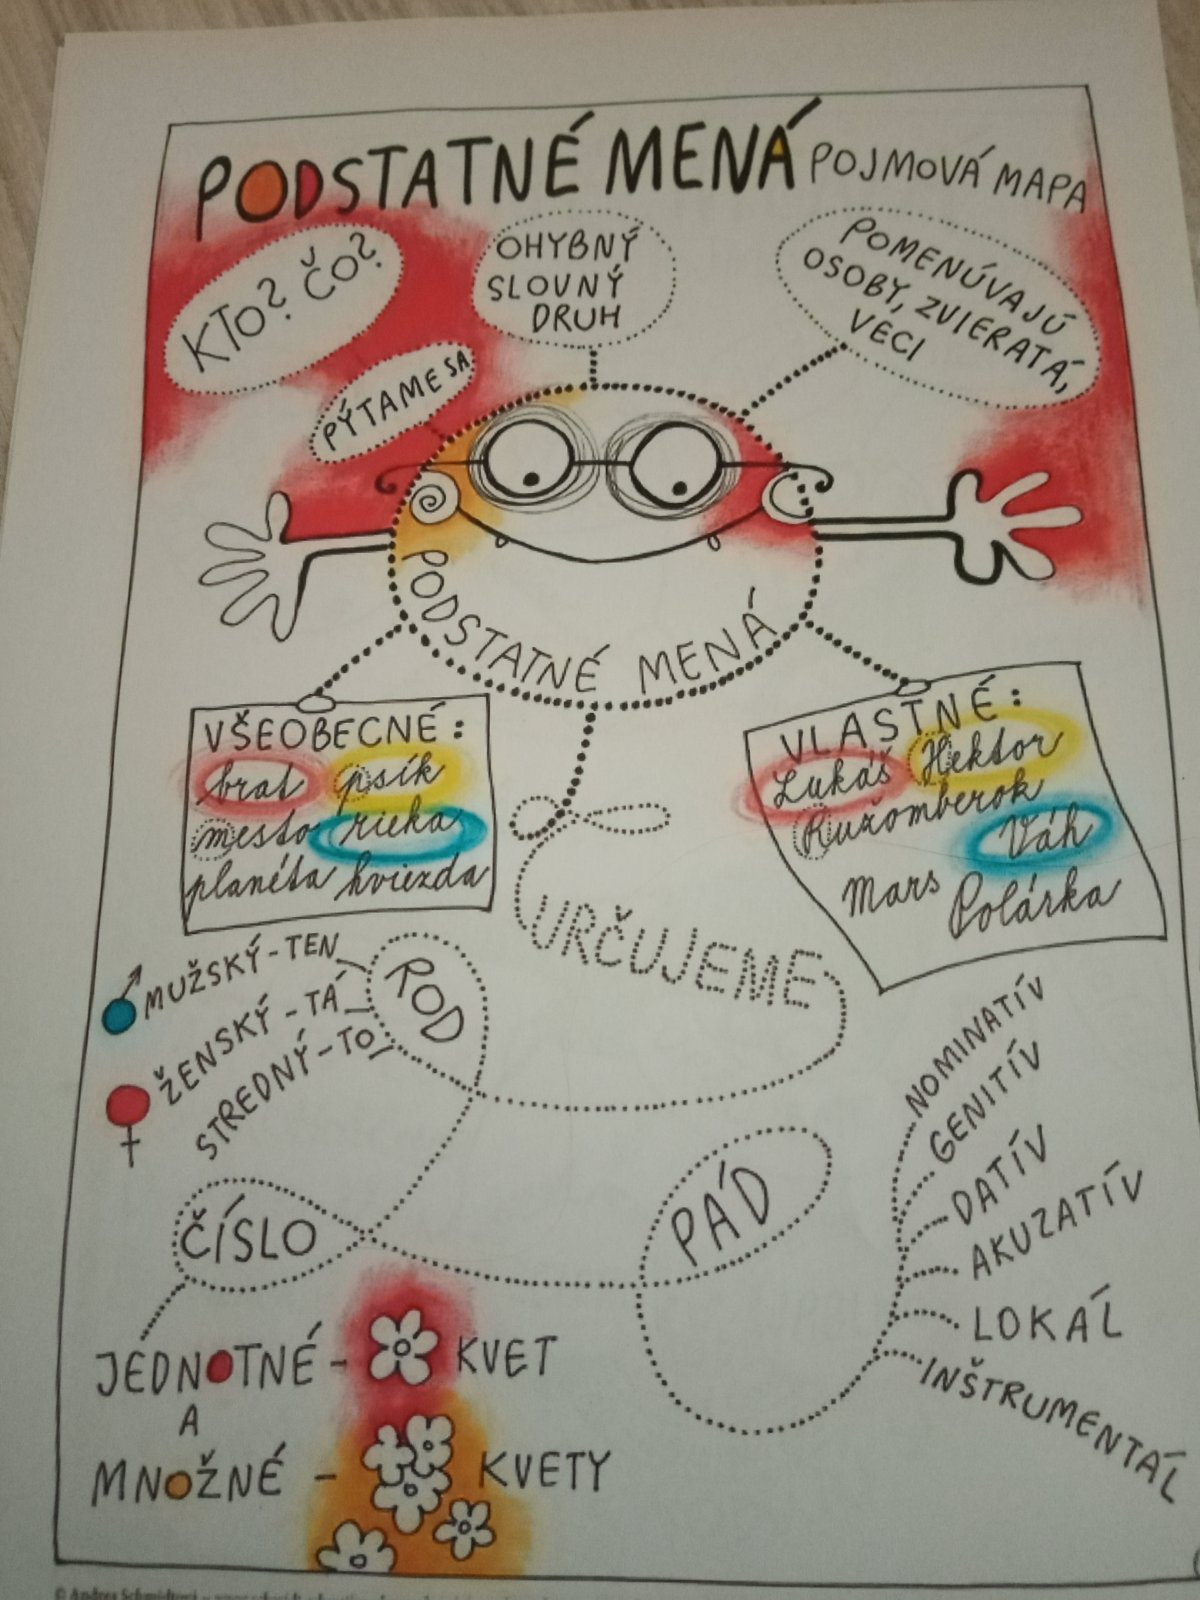 PODSTATNÉ MENÁ POJMOVÁ MAPA
KTO? ČO?
PÝTAME SA
OHYBNÝ
SLOVNÝ
DRUH
POMENÚVAJÚ
OSOBY, ZVIERATÁ,
VECI
PODSTATNÉ MENÁ
VŠEOBECNÉ:
brat psík
mesto rieka
planéta hviezda
VLASTNÉ:
Lukáš Hektor
Ružomberok
Váh
Mars Polárka
URČUJEME
ROD
MUŽSKÝ - TEN
ŽENSKÝ - TÁ
STREDNÝ - TO
ČÍSLO
JEDNOTNÉ - KVET
A
MNOŽNÉ - KVETY
PÁD
NOMINATÍV
GENITÍV
DATÍV
AKUZATÍV
LOKÁL
INŠTRUMENTÁL
© Andrea Schmidtová